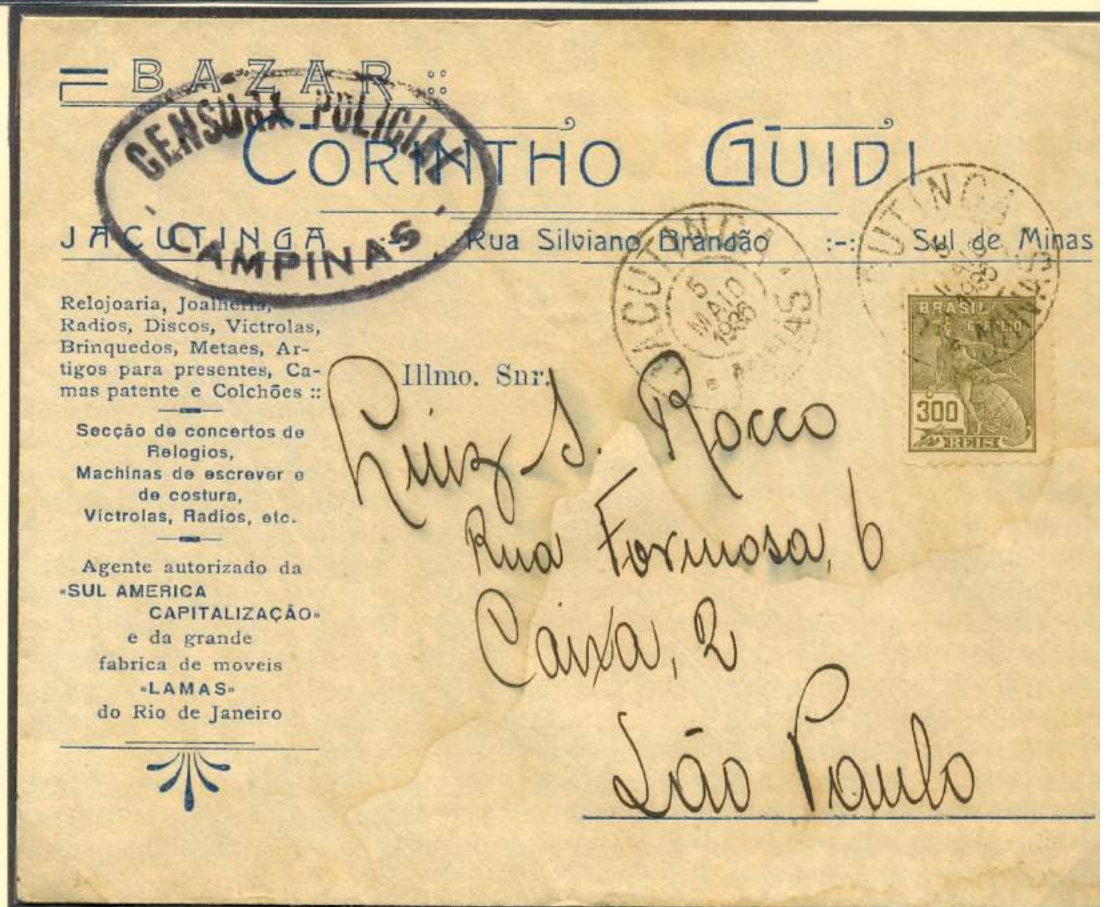 BAZAR ::
CENSURA POLICIAL
CAMPINAS
CORINTHO GUIDI
JACUTINGA -:- Rua Silviano Brandão :-: Sul de Minas
JACUTINGA
5
MAIO
1936
MINAS
CUTINGA
MINAS
BRASIL
CORREIO
300
REIS
Relojoaria, Joalheria,
Radios, Discos, Victrolas,
Brinquedos, Metaes, Ar-
tigos para presentes, Ca-
mas patente e Colchões ::
Secção de concertos de
Relogios,
Machinas de escrever e
de costura,
Victrolas, Radios, etc.
Agente autorizado da
«SUL AMERICA
CAPITALIZAÇÃO»
e da grande
fabrica de moveis
«LAMAS»
do Rio de Janeiro
Illmo. Snr.
Luiz S. Rocco
Rua Formosa, 6
Caixa, 2
São Paulo